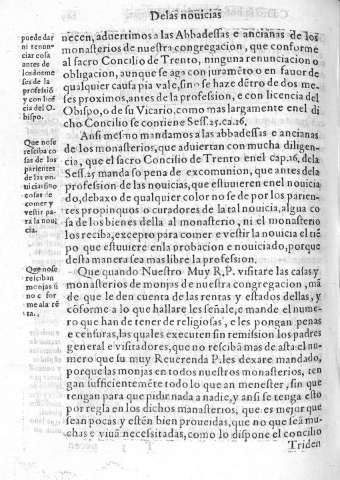 De las nouicias
puede dar
ni renun-
ciar cosa
antes de
los dos me-
ses de la
profesiõ
y con licẽ
cia del O-
bispo.
Que no se
reciba co
sa de los
parientes
de las no-
uicias sino
cosas de
comer y
vestir pa-
ra la noui
cia.
Que no se
reciban
monjas si
no cõfor
me a la rẽ
ta.
necen, aduertimos a las Abbadessas e ancianas de los
monasterios de nuestra congregacion, que conforme
al sacro Concilio de Trento, ninguna renunciacion o
obligacion, aunque se aga con juramẽto o en fauor de
qualquier causa pia vale, sino se haze dẽtro de dos me-
ses proximos, antes de la profession, e con licencia del
Obispo, o de su Vicario, como mas largamente en el di
cho Concilio se contiene Sess.25.ca.16.
Ansi mesmo mandamos a las abbadessas e ancianas
de los monasterios, que aduiertan con mucha diligen-
cia, que el sacro Concilio de Trento en el cap.16. de la
Sess.25 manda so pena de excomunion, que antes de la
profession de las nouicias, que estuuieren en el nouicia
do, debaxo de qualquier color no se de por los parien-
tes propinquos o curadores de la tal nouicia, algua co
sa de los bienes della al monasterio, ni el monasterio
los reciba, excepto para comer e vestir la nouicia el tiẽ
po que estuuiere en la probacion e nouiciado, porque
desta manera sea mas libre la profession.
Que quando Nuestro Muy R.P. visitare las casas y
monasterios de monjas de nuestra congregacion, mã
de que le den cuenta de las rentas y estados dellas, y
cõforme a lo que hallare les señale, e mande el nume-
ro que han de tener de religiosas, e les pongan penas
e censuras, las quales executen sin remission los padres
general e visitadores, que no recibã mas de asta el nu-
mero que su muy Reuerenda P. les dexare mandado,
porque las monjas en todos nuestros monasterios, ten
gan sufficientemẽte todo lo que an menester, sin que
tengan para que pidir nada a nadie, y ansi se tenga esto
por regla en los dichos monasterios, que es mejor que
sean pocas y estẽn bien proueidas, que no que seã mu-
chas e viuã necessitadas, como lo dispone el concilio
Triden